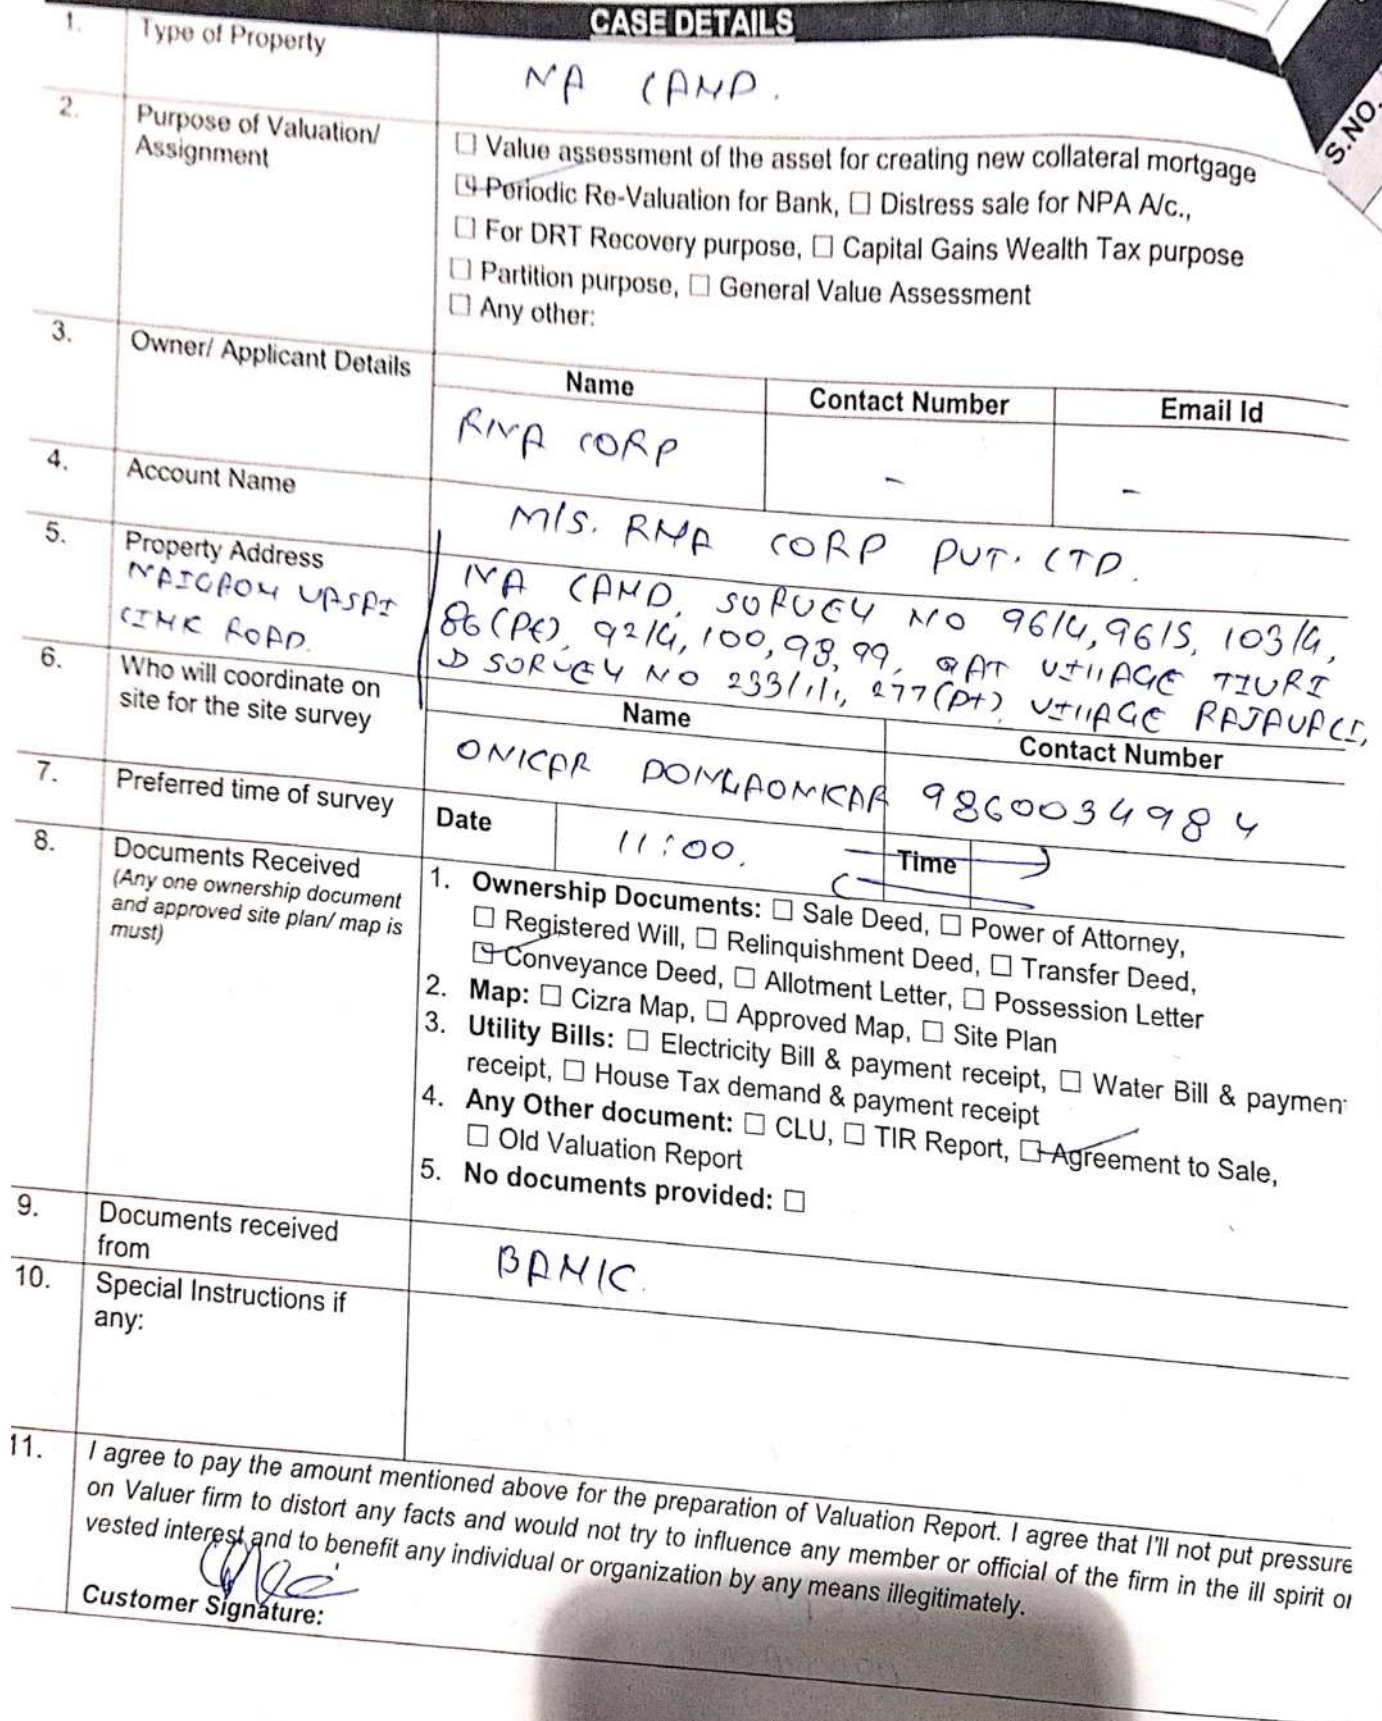 CASE DETAILS
S.NO.
1. Type of Property
NA LAND.
2. Purpose of Valuation/
Assignment
☐ Value assessment of the asset for creating new collateral mortgage
☑ Periodic Re-Valuation for Bank, ☐ Distress sale for NPA A/c.,
☐ For DRT Recovery purpose, ☐ Capital Gains Wealth Tax purpose
☐ Partition purpose, ☐ General Value Assessment
☐ Any other:
3. Owner/ Applicant Details
Name Contact Number Email Id
RNA CORP - -
4. Account Name
M/S. RNA CORP PVT. LTD.
5. Property Address
NAIGAON VASAI
LINK ROAD.
NA LAND, SURVEY NO 96/4, 96/5, 103/4,
86(Pt), 92/4, 100, 98, 99, AT VILLAGE TIVRI
SURVEY NO 233/1/1, 277(Pt) VILLAGE RAJAVALI,
6. Who will coordinate on
site for the site survey
Name Contact Number
ONKAR DONGAONKAR 9860034984
7. Preferred time of survey
Date 11:00. Time
8. Documents Received
(Any one ownership document
and approved site plan/ map is
must)
1. Ownership Documents: ☐ Sale Deed, ☐ Power of Attorney,
☐ Registered Will, ☐ Relinquishment Deed, ☐ Transfer Deed,
☑ Conveyance Deed, ☐ Allotment Letter, ☐ Possession Letter
2. Map: ☐ Cizra Map, ☐ Approved Map, ☐ Site Plan
3. Utility Bills: ☐ Electricity Bill & payment receipt, ☐ Water Bill & paymen
receipt, ☐ House Tax demand & payment receipt
4. Any Other document: ☐ CLU, ☐ TIR Report, ☑ Agreement to Sale,
☐ Old Valuation Report
5. No documents provided: ☐
9. Documents received
from
BANK.
10. Special Instructions if
any:
11. I agree to pay the amount mentioned above for the preparation of Valuation Report. I agree that I'll not put pressure
on Valuer firm to distort any facts and would not try to influence any member or official of the firm in the ill spirit or
vested interest and to benefit any individual or organization by any means illegitimately.
Customer Signature: